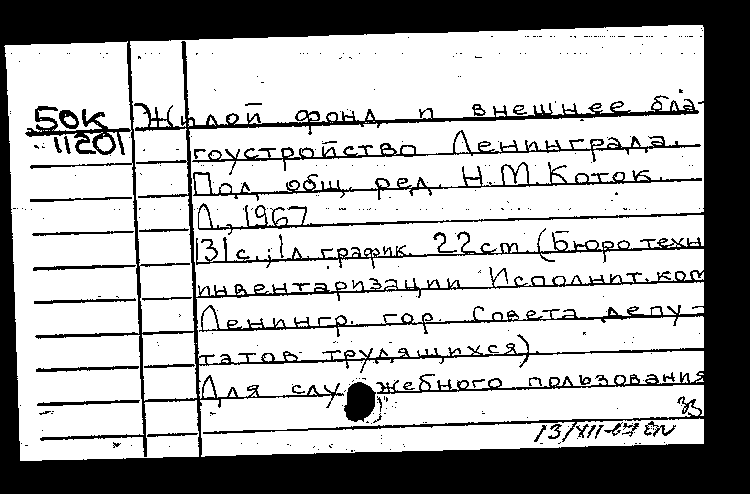 50К Жилой фонд и внешнее бла-
11201
гоустройство Ленинграда.
Под общ. ред. Н.М.Коток.
Л., 1967
131с.; 1л. график. 22cm. (Бюро техн
инвентаризации Исполнит.ком
Ленингр. гор. Совета депу-
татов трудящихся).
Для служебного пользования
13/XII-67